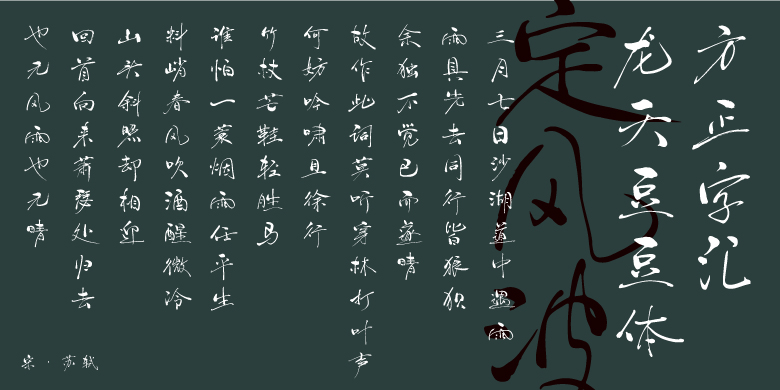 方正字汇
龙天豆豆体
定风波
三月七日沙湖道中遇雨
雨具先去同行皆狼狈
余独不觉已而遂晴
故作此词莫听穿林打叶声
何妨吟啸且徐行
竹杖芒鞋轻胜马
谁怕一蓑烟雨任平生
料峭春风吹酒醒微冷
山头斜照却相迎
回首向来萧瑟处归去
也无风雨也无晴
宋·苏轼